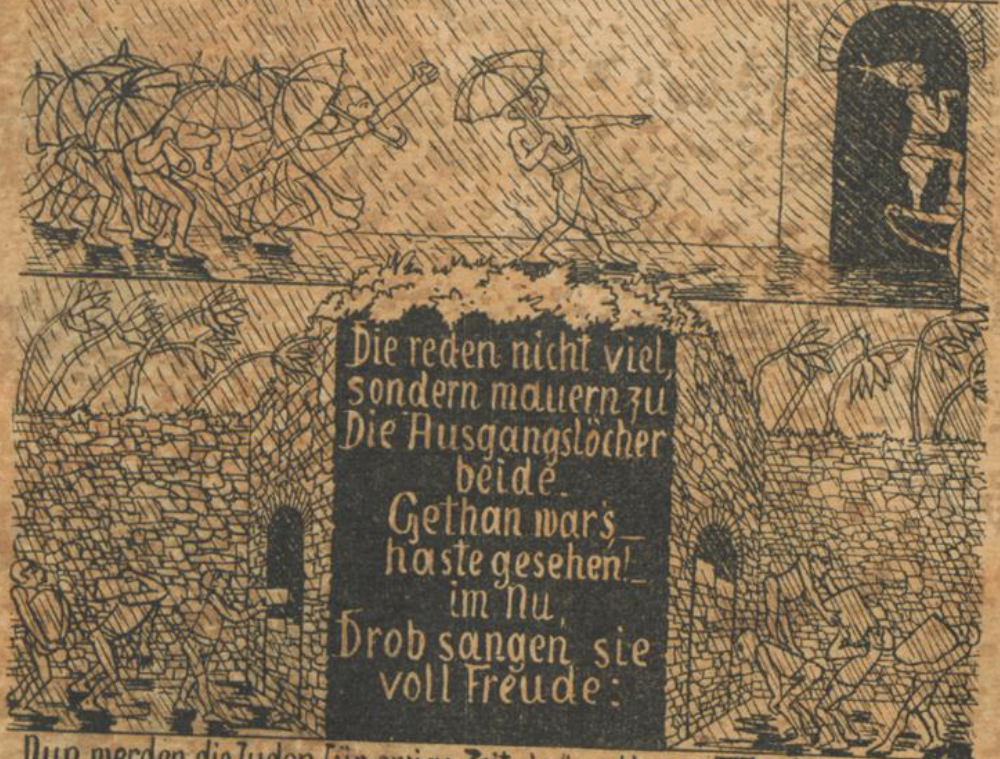 Die reden nicht viel,
sondern mauern zu
Die Ausgangslöcher
beide.
Gethan war's_
haste gesehen!_
im Nu,
Drob sangen sie
voll Freude:
Nun werden die Juden für ewige Zeit